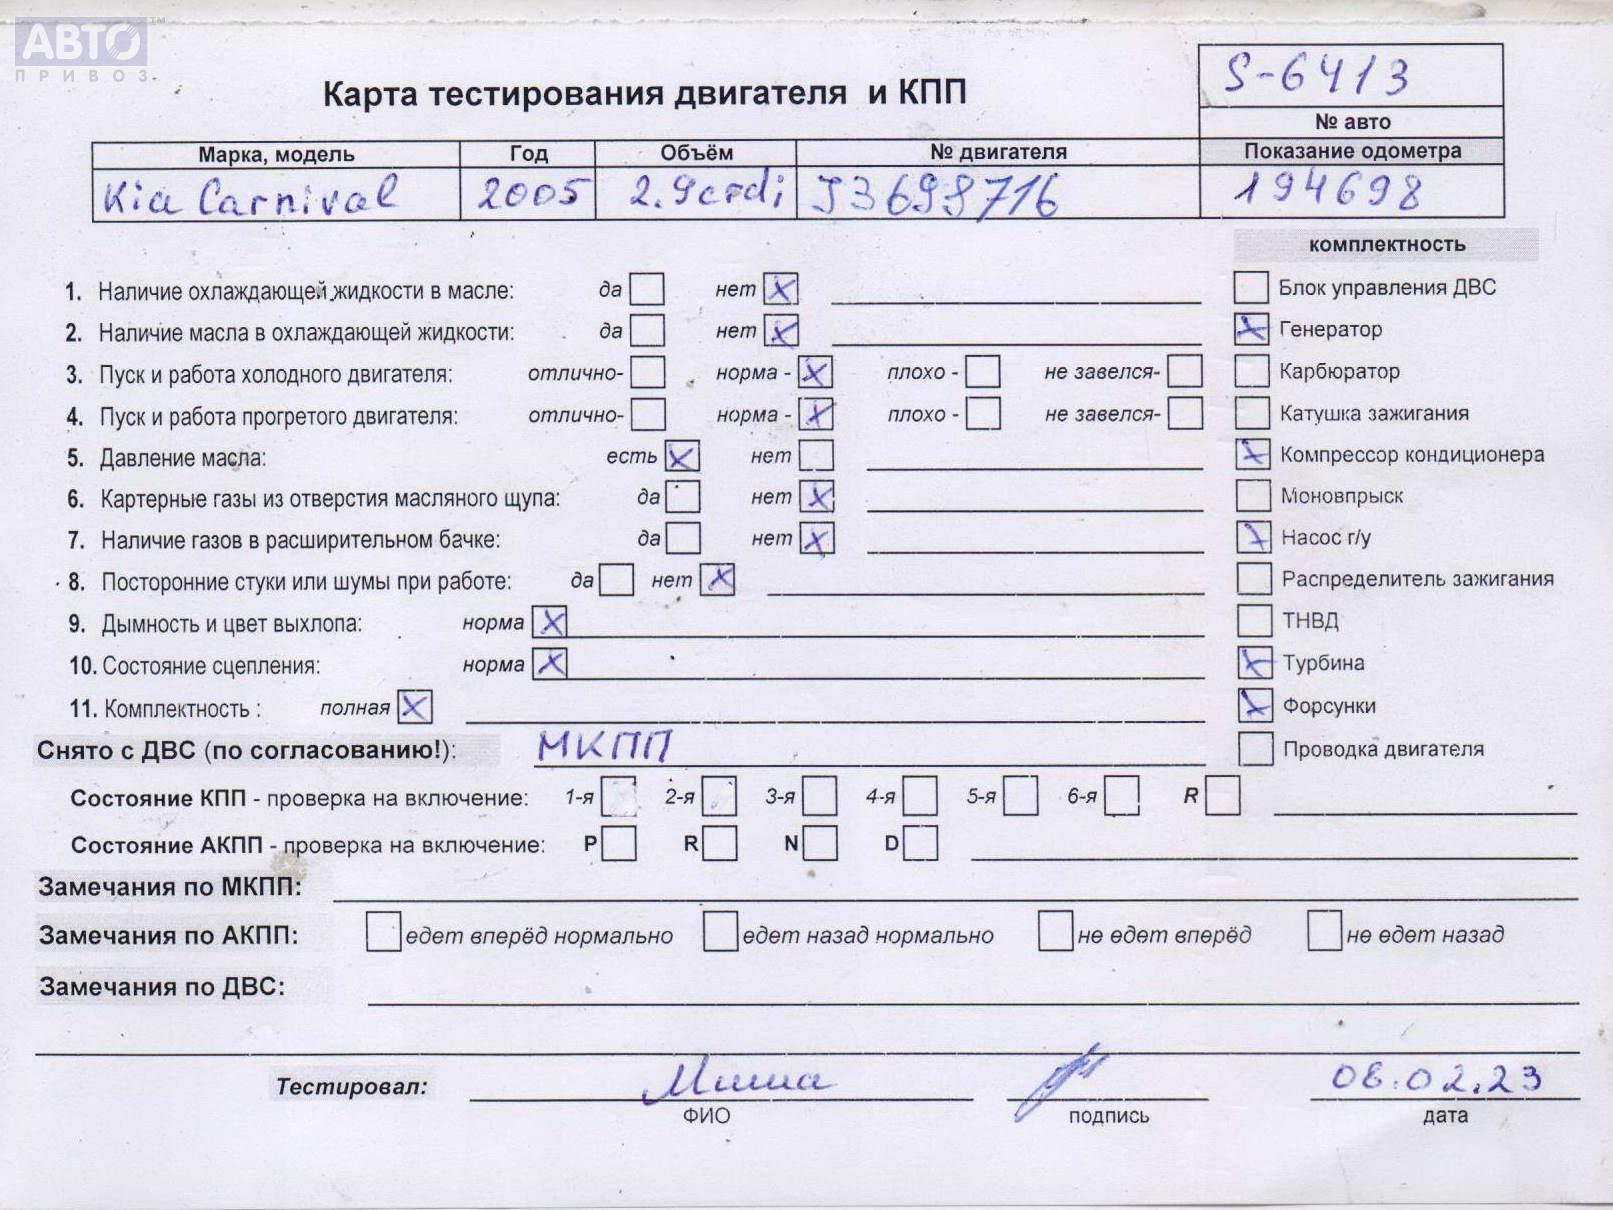 АВТО™
ПРИВОЗ
S-6413
Карта тестирования двигателя и КПП
№ авто
Марка, модель Год Объём № двигателя Показание одометра
Kia Carnival 2005 2.9crdi J3698716 194698
комплектность
1. Наличие охлаждающей жидкости в масле: да нет X
Блок управления ДВС
2. Наличие масла в охлаждающей жидкости: да нет X
X Генератор
3. Пуск и работа холодного двигателя: отлично- норма - X плохо - не завелся-
Карбюратор
4. Пуск и работа прогретого двигателя: отлично- норма - X плохо - не завелся-
Катушка зажигания
5. Давление масла: есть X нет
X Компрессор кондиционера
6. Картерные газы из отверстия масляного щупа: да нет X
Моновпрыск
7. Наличие газов в расширительном бачке: да нет X
X Насос г/у
8. Посторонние стуки или шумы при работе: да нет X
Распределитель зажигания
9. Дымность и цвет выхлопа: норма X
ТНВД
10. Состояние сцепления: норма X
X Турбина
11. Комплектность : полная X
X Форсунки
Снято с ДВС (по согласованию!): МКПП
Проводка двигателя
Состояние КПП - проверка на включение: 1-я 2-я 3-я 4-я 5-я 6-я R
Состояние АКПП - проверка на включение: P R N D
Замечания по МКПП:
Замечания по АКПП: едет вперёд нормально едет назад нормально не едет вперёд не едет назад
Замечания по ДВС:
Тестировал: Миша 06.02.23
ФИО подпись дата